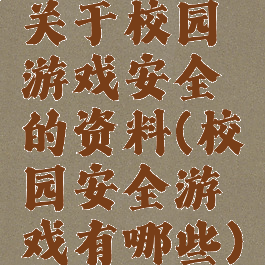 关于校园
游戏安全
的资料(校
园安全游
戏有哪些)